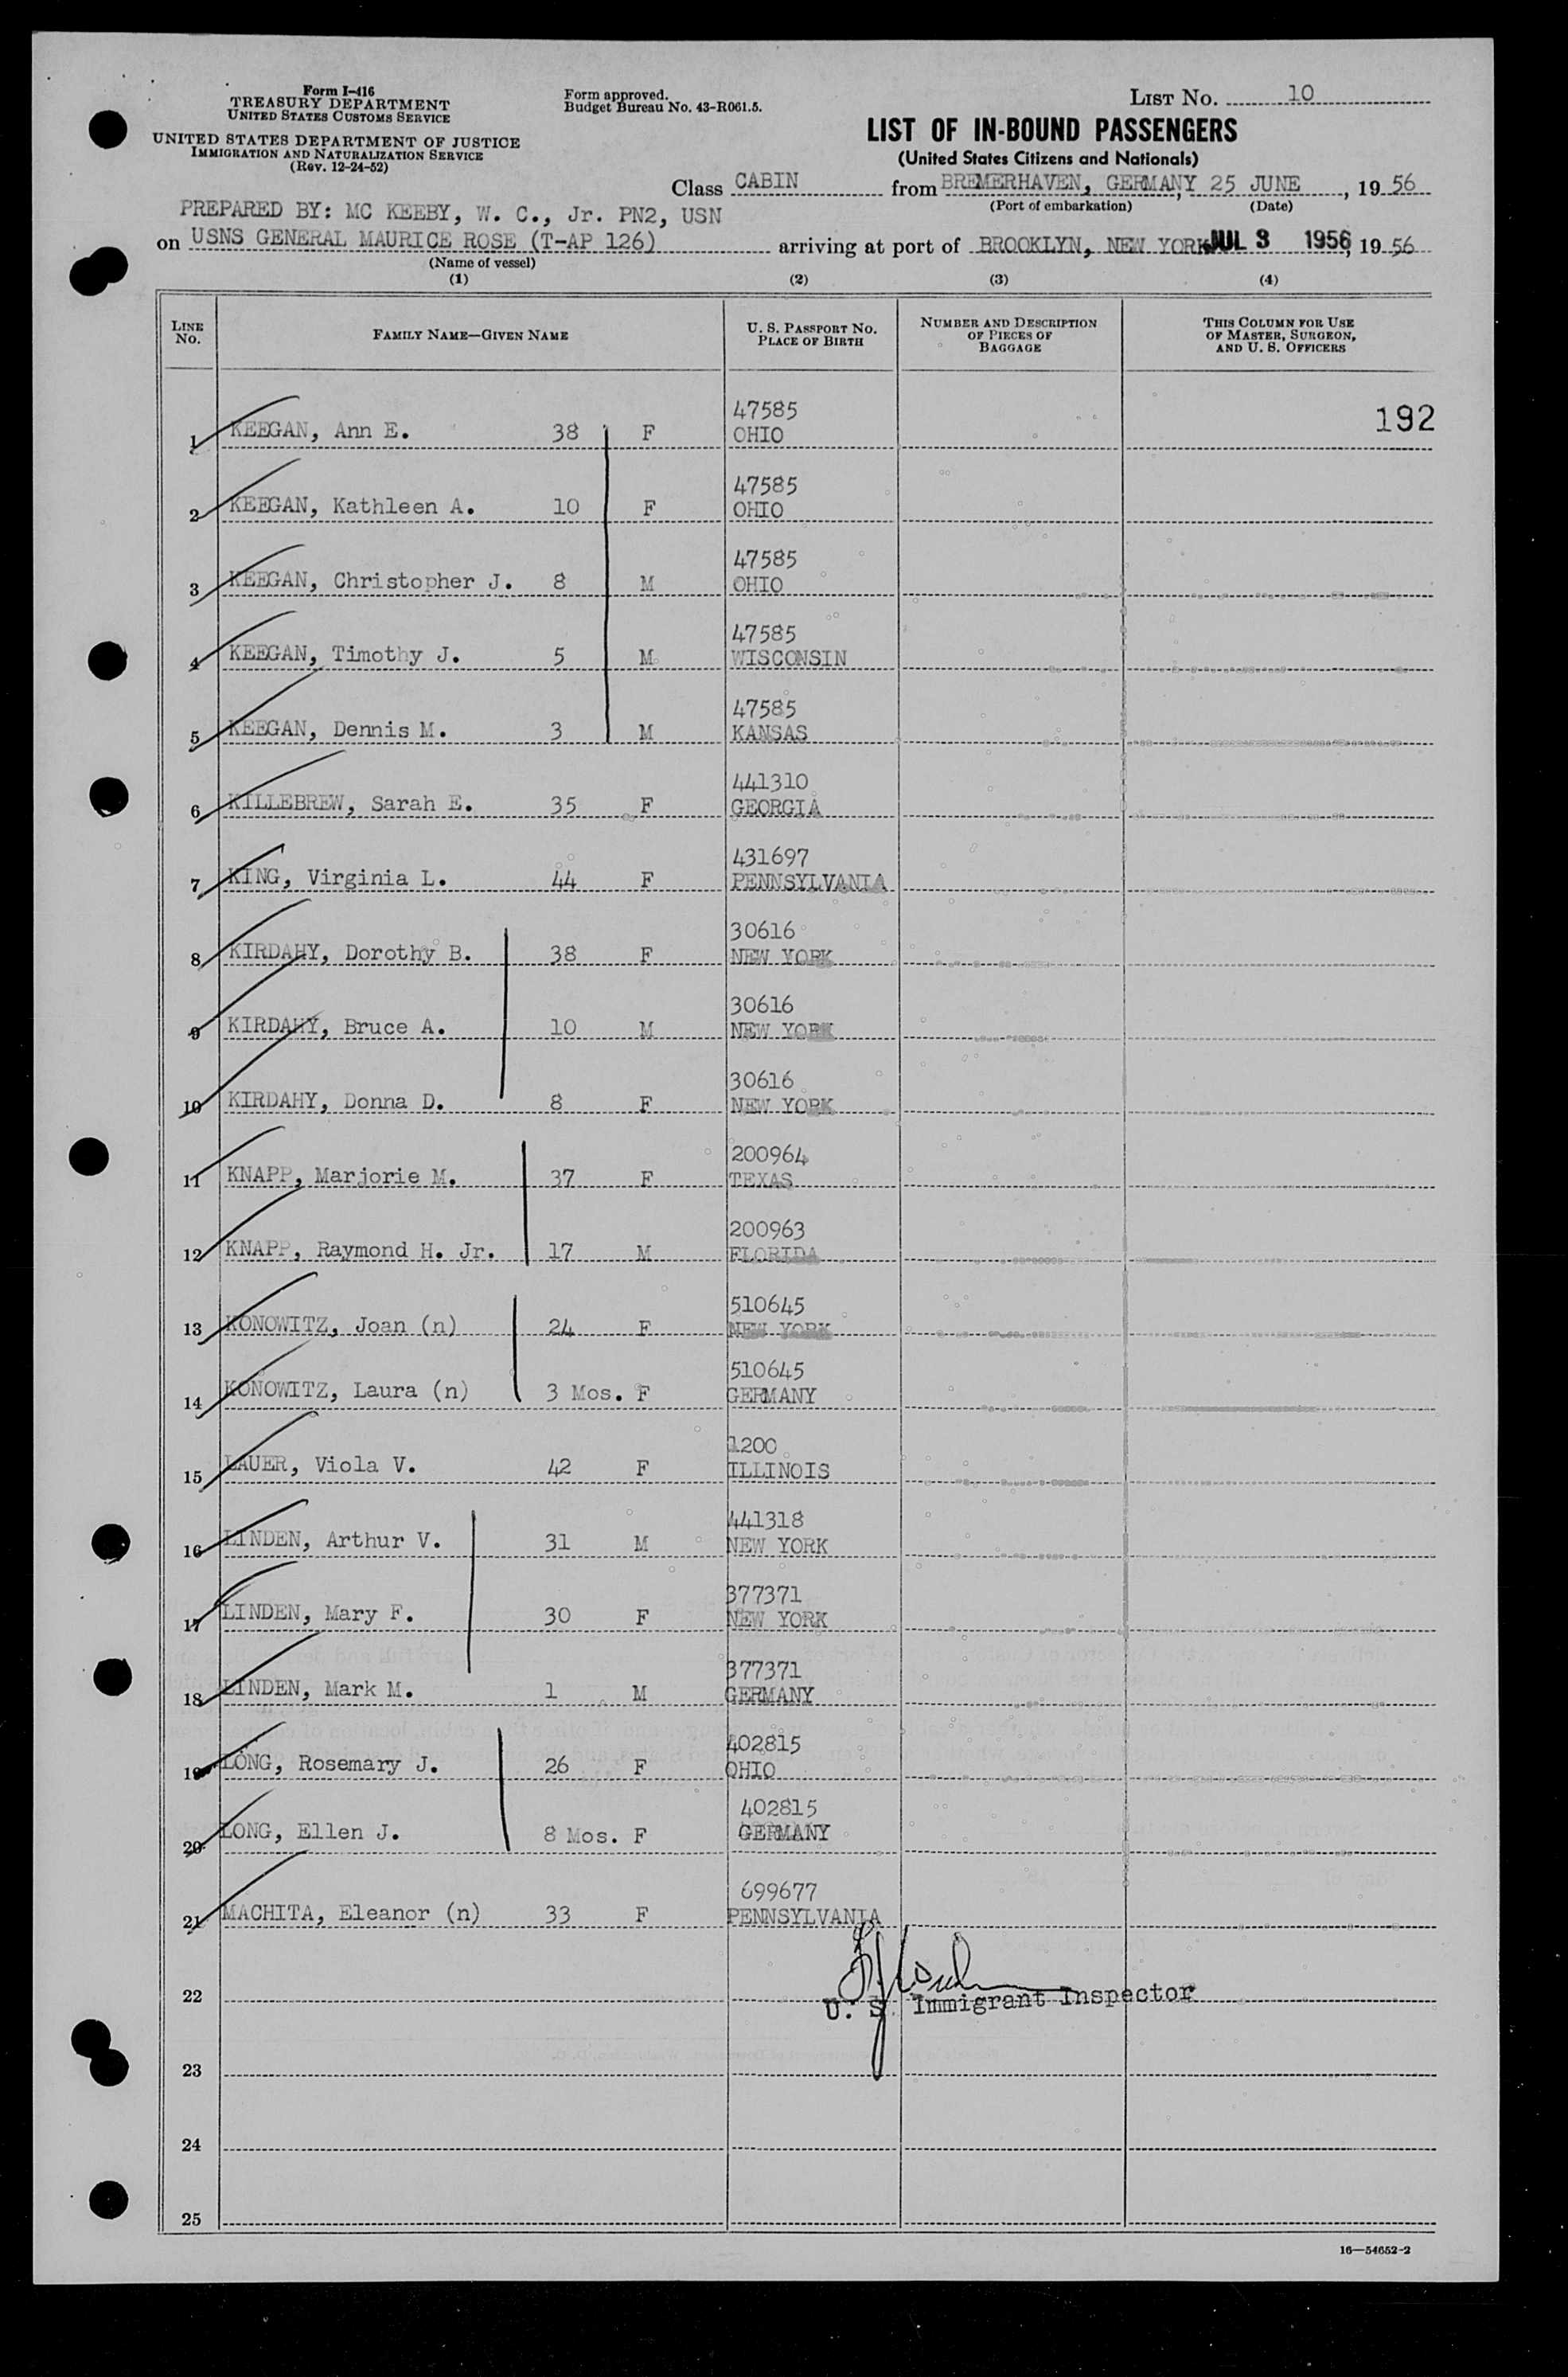 Form I-416
TREASURY DEPARTMENT
UNITED STATES CUSTOMS SERVICE
UNITED STATES DEPARTMENT OF JUSTICE
IMMIGRATION AND NATURALIZATION SERVICE
(Rev. 12-24-52)
Form approved.
Budget Bureau No. 43-R061.5.
LIST No. 10
LIST OF IN-BOUND PASSENGERS
(United States Citizens and Nationals)
Class CABIN from BREMERHAVEN, GERMANY, 25 JUNE, 19 56
(Port of embarkation) (Date)
PREPARED BY: MC KEEBY, W. C., Jr. PN2, USN
on USNS GENERAL MAURICE ROSE (T-AP 126) arriving at port of BROOKLYN, NEW YORK JUL 3 1956, 19 56
(Name of vessel)
(1) (2) (3) (4)
LINE No. FAMILY NAME—GIVEN NAME U. S. PASSPORT No. PLACE OF BIRTH NUMBER AND DESCRIPTION OF PIECES OF BAGGAGE THIS COLUMN FOR USE OF MASTER, SURGEON, AND U. S. OFFICERS
47585 192
1 KEEGAN, Ann E. 38 F OHIO
47585
2 KEEGAN, Kathleen A. 10 F OHIO
47585
3 KEEGAN, Christopher J. 8 M OHIO
47585
4 KEEGAN, Timothy J. 5 M WISCONSIN
47585
5 KEEGAN, Dennis M. 3 M KANSAS
441310
6 KILLEBREW, Sarah E. 35 F GEORGIA
431697
7 KING, Virginia L. 44 F PENNSYLVANIA
30616
8 KIRDAHY, Dorothy B. 38 F NEW YORK
30616
9 KIRDAHY, Bruce A. 10 M NEW YORK
30616
10 KIRDAHY, Donna D. 8 F NEW YORK
200964
11 KNAPP, Marjorie M. 37 F TEXAS
200963
12 KNAPP, Raymond H. Jr. 17 M FLORIDA
510645
13 KONOWITZ, Joan (n) 24 F NEW YORK
510645
14 KONOWITZ, Laura (n) 3 Mos. F GERMANY
1200
15 LAUER, Viola V. 42 F ILLINOIS
441318
16 LINDEN, Arthur V. 31 M NEW YORK
377371
17 LINDEN, Mary F. 30 F NEW YORK
377371
18 LINDEN, Mark M. 1 M GERMANY
402815
19 LONG, Rosemary J. 26 F OHIO
402815
20 LONG, Ellen J. 8 Mos. F GERMANY
699677
21 MACHITA, Eleanor (n) 33 F PENNSYLVANIA
22 U. S. Immigrant Inspector
23
24
25
16—54652-2